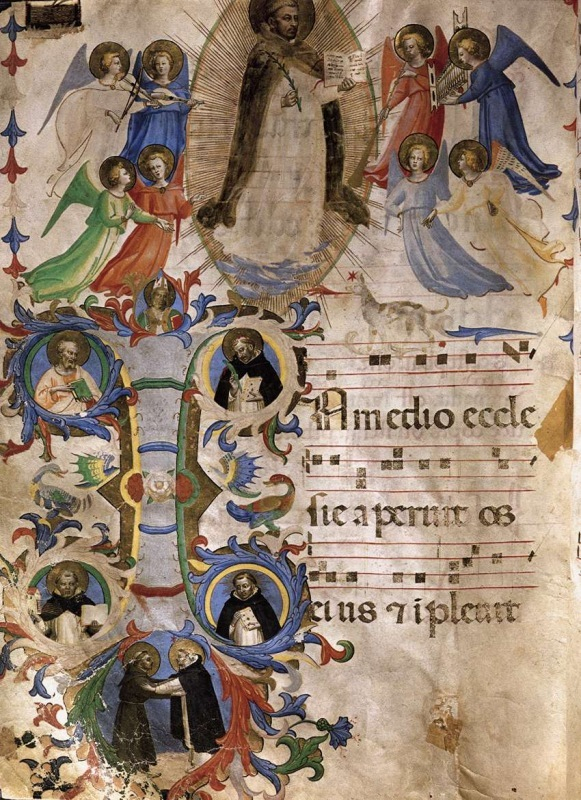 In medio eccle
sie aperuit os
eius ⁊ i pleuit